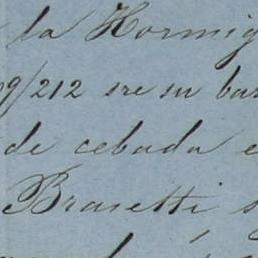 la Hormig
9/212 sre su bas
de cebada e
Brasetti s